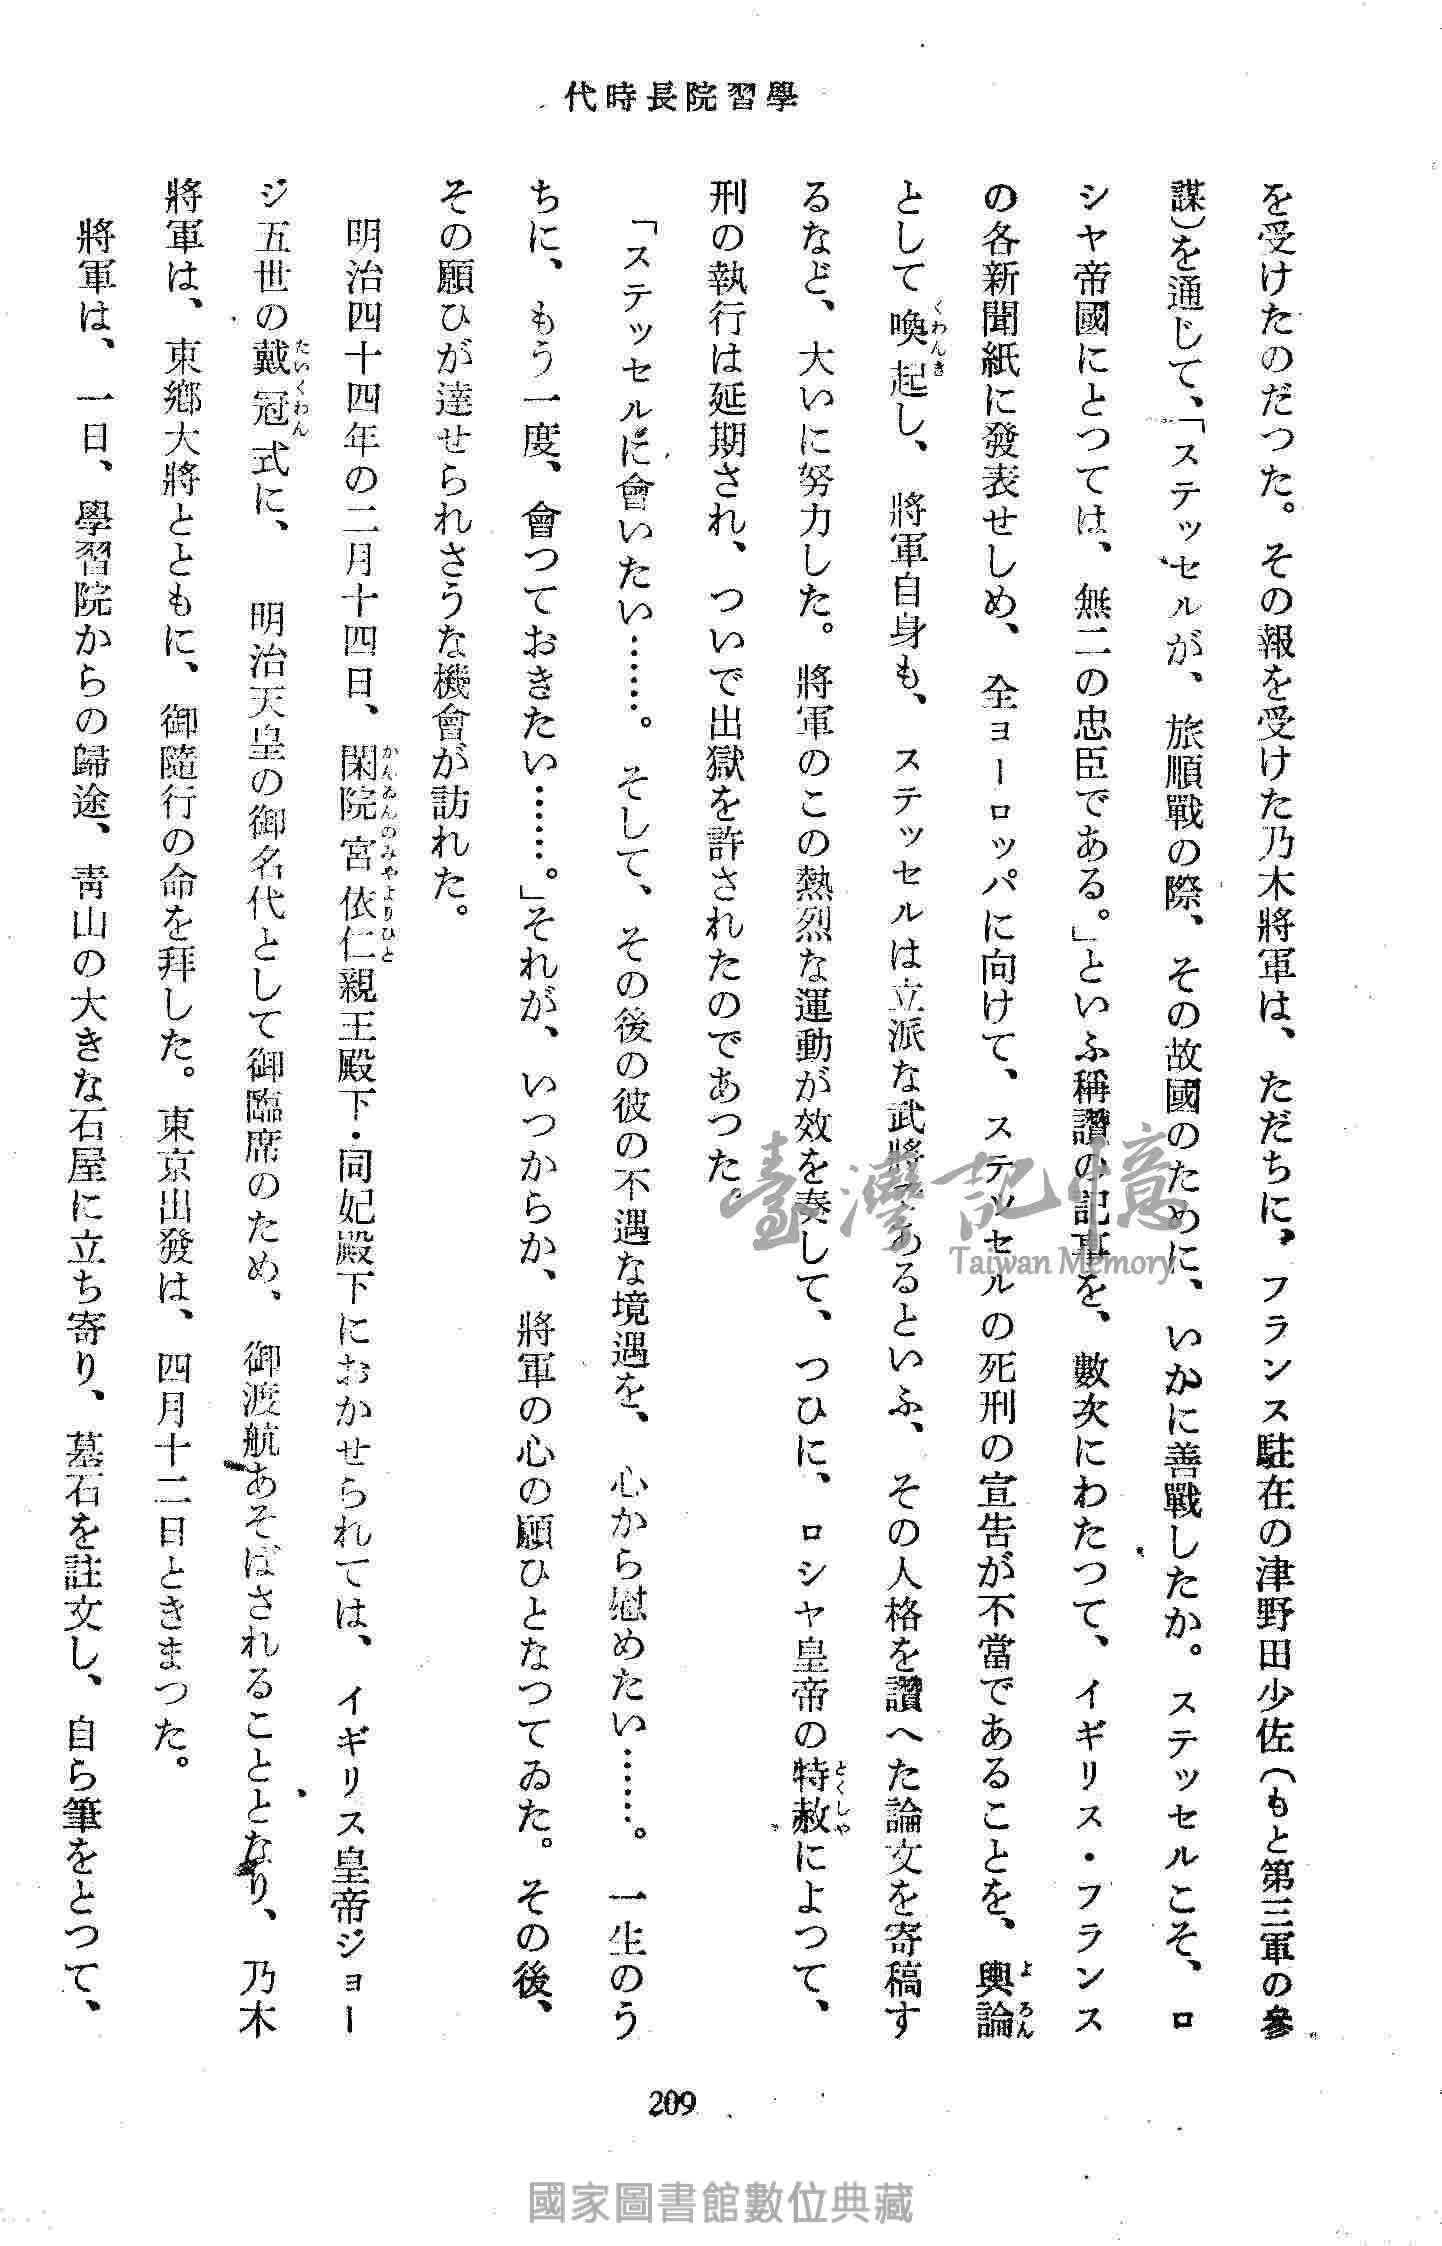 代時長院習學
を受けたのだつた。その報を受けた乃木將軍は、ただちに、フランス駐在の津野田少佐(もと第三軍の參
謀)を通じて、「ステッセルが、旅順戰の際、その故國のために、いかに善戰したか。ステッセルこそ、ロ
シヤ帝國にとつては、無二の忠臣である。」といふ稱讚の記事を、數次にわたつて、イギリス・フランス
の各新聞紙に發表せしめ、全ヨーロッパに向けて、ステッセルの死刑の宣告が不當であることを、輿論
よろん
として喚起し、將軍自身も、ステッセルは立派な武將であるといふ、その人格を讚へた論文を寄稿す
くわんき
るなど、大いに努力した。將軍のこの熱烈な運動が效を奏して、つひに、ロシヤ皇帝の特赦によつて、
とくしや
刑の執行は延期され、ついで出獄を許されたのであつた。
「ステッセルに會いたい……。そして、その後の彼の不遇な境遇を、心から慰めたい……。一生のう
ちに、もう一度、會つておきたい……。」それが、いつからか、將軍の心の願ひとなつてゐた。その後、
その願ひが達せられさうな機會が訪れた。
明治四十四年の二月十四日、閑院宮依仁親王殿下・同妃殿下におかせられては、イギリス皇帝ジョー
かんゐんのみやよりひと
ジ五世の戴冠式に、明治天皇の御名代として御臨席のため、御渡航あそばされることとなり、乃木
たいくわん
將軍は、東鄕大將とともに、御隨行の命を拜した。東京出發は、四月十二日ときまつた。
將軍は、一日、學習院からの歸途、靑山の大きな石屋に立ち寄り、墓石を註文し、自ら筆をとつて、
209
臺灣記憶
Taiwan Memory
國家圖書館數位典藏